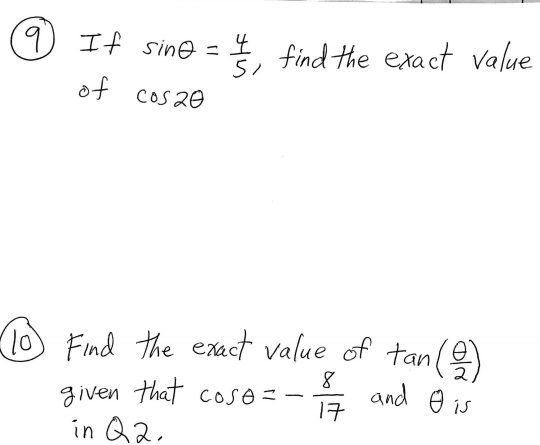 ⑨ If sinθ = 4/5, find the exact value
of cos2θ
⑩ Find the exact value of tan(θ/2)
given that cosθ = - 8/17 and θ is
in Q2.